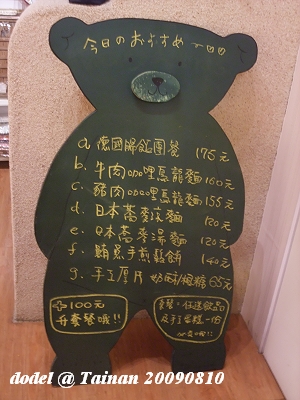 今日のおすすめ
a. 德國腸飯團餐 175元
b. 牛肉咖哩烏龍麵 160元
c. 豬肉咖哩烏龍麵 155元
d. 日本蕎麥涼麵 120元
e. 日本蕎麥湯麵 120元
f. 鮪魚手煎鬆餅 140元
g. 手工厚片 奶酥/楓糖 65元
+100元
升套餐哦!!
套餐:任選飲品
及手工蛋糕一份
dodel @ Tainan 20090810